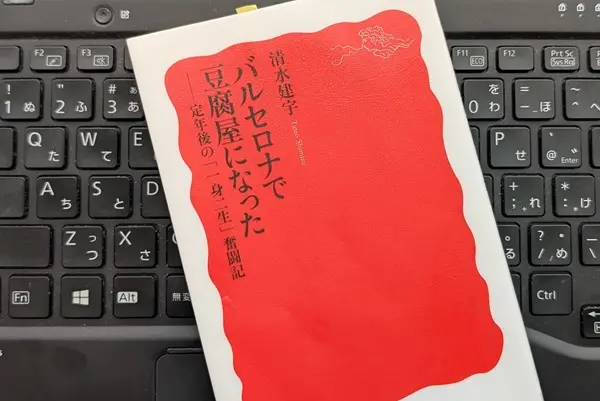 清水建宇
Tateo Shimizu
バルセロナで
豆腐屋になった
──定年後の「一身二生」奮闘記
F2
F3
F11
ECO
F12
Prt Sc
Sys Rq
Ins
!
1 ぬ
"
2 ふ
#
3 あ
を
0 わ
=
- ほ
^ へ
Q
た
W
て
E
P
せ
@
Enter
A
ち
S
と
D
Z
っ
つ
X
さ
Fn
Alt
無変
Ctrl